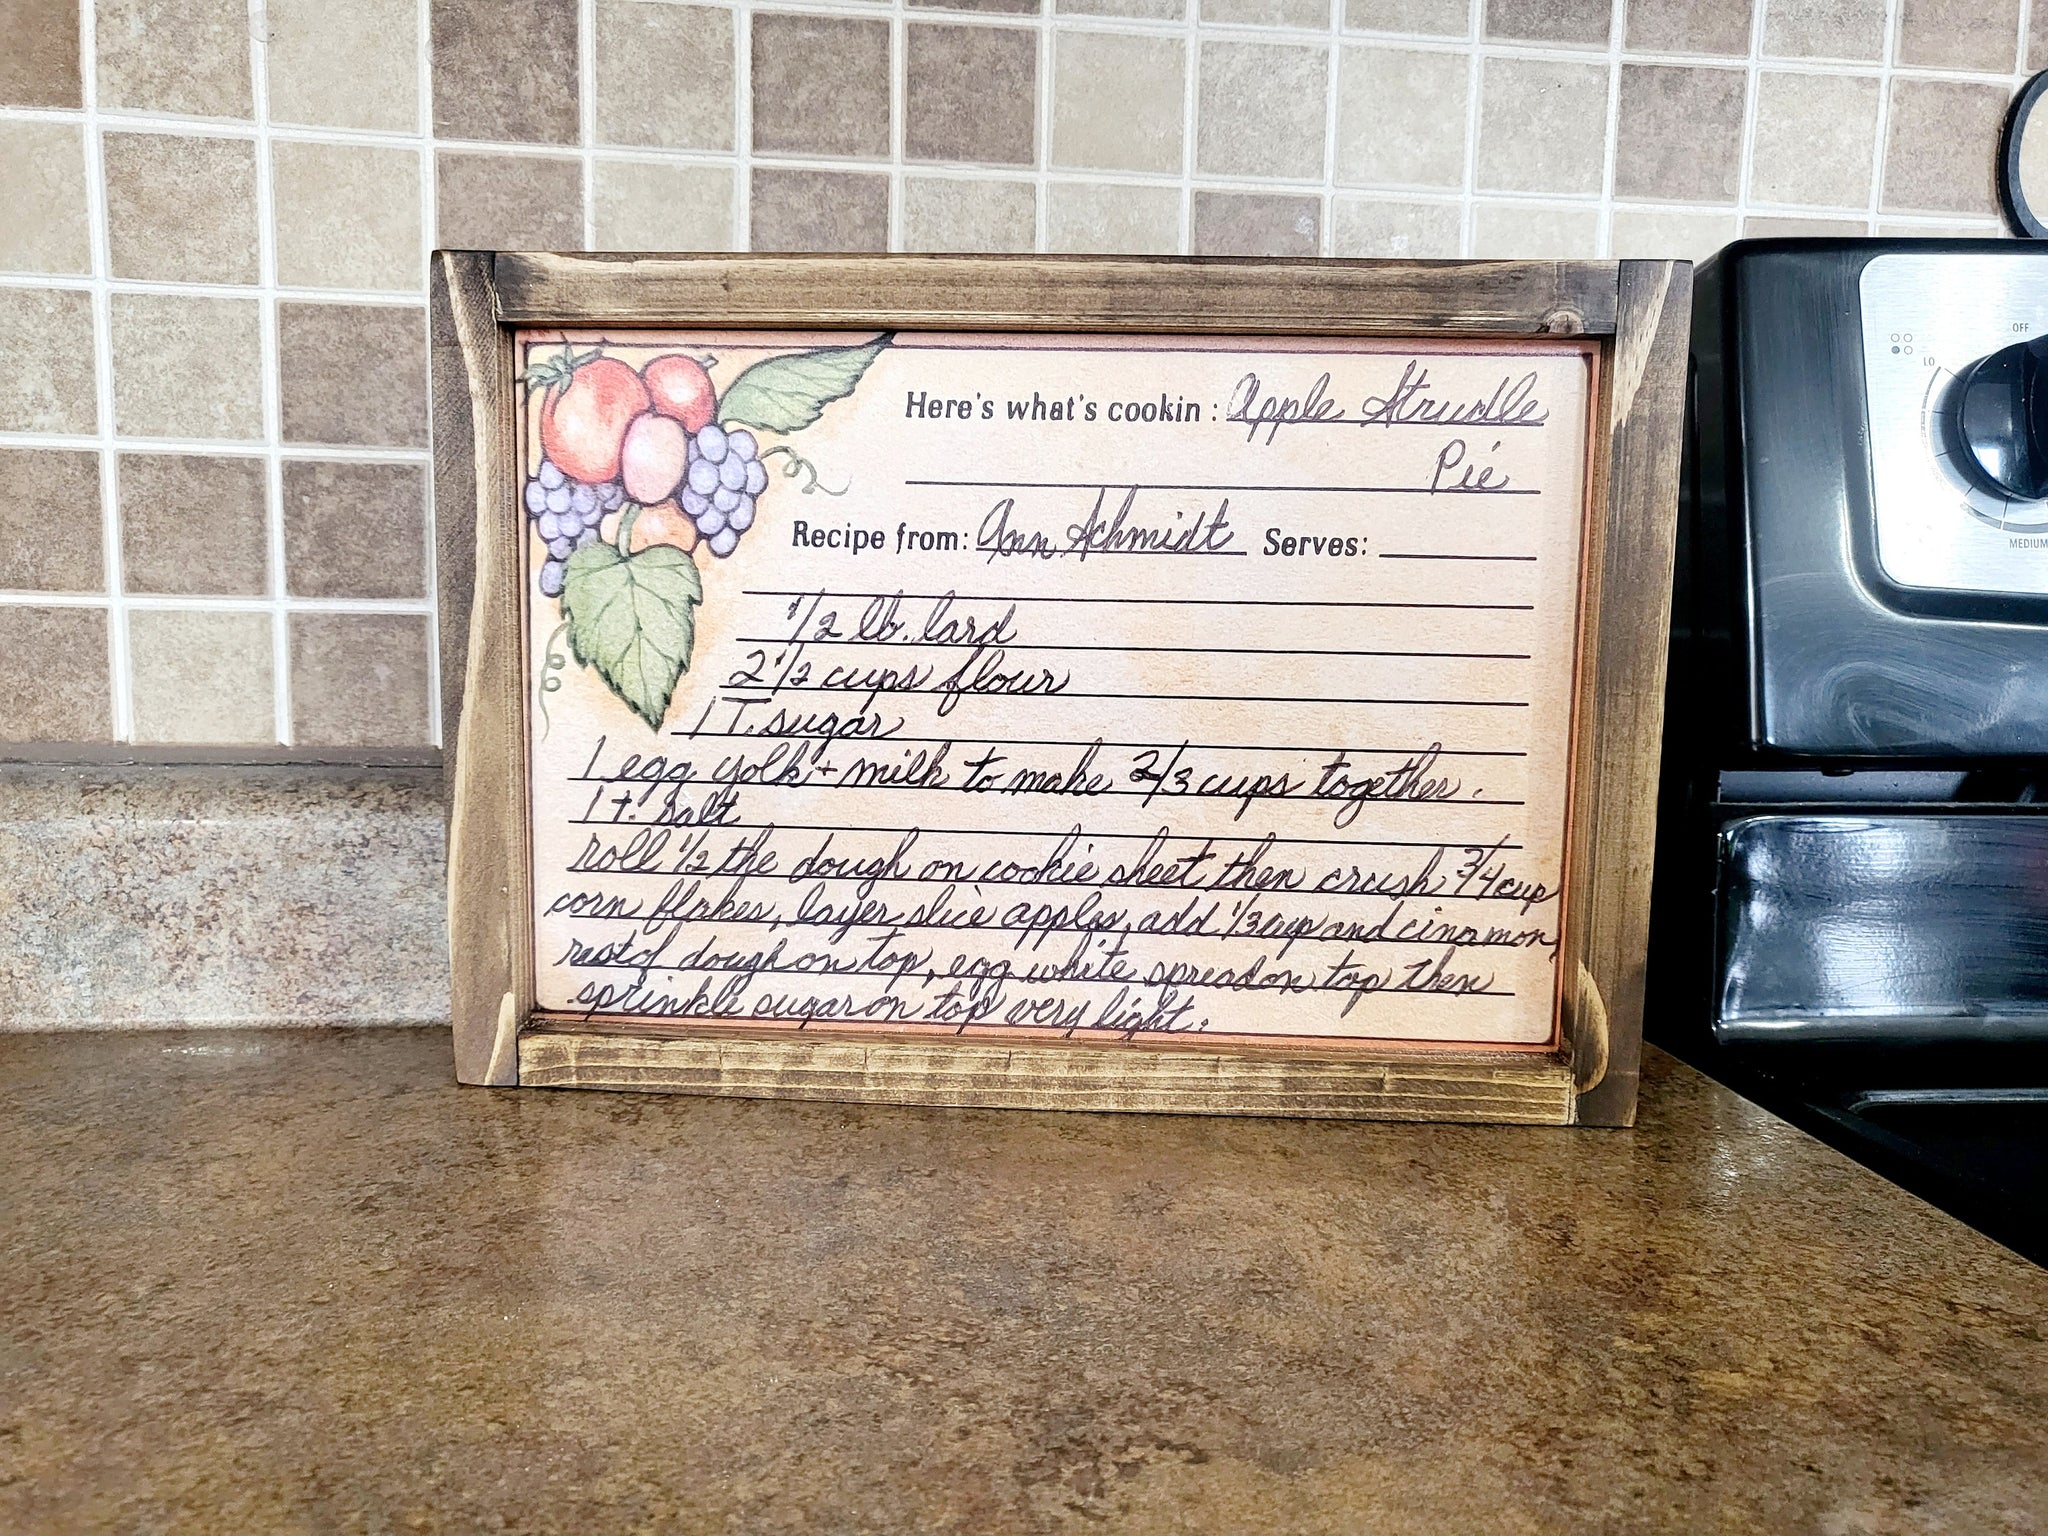 Here's what's cookin: Apple Strudle
Pie
Recipe from: Ann Schmidt Serves:
1/2 lb. lard
2 1/2 cups flour
1 T. sugar
1 egg yolk + milk to make 2/3 cups together.
1 t. salt
roll 1/2 the dough on cookie sheet then crush 3/4 cup
corn flakes, layer slice apples, add 1/3 cup and cinamon,
rest of dough on top, egg white spread on top then
sprinkle sugar on top very light.
OFF
LO
MEDIUM